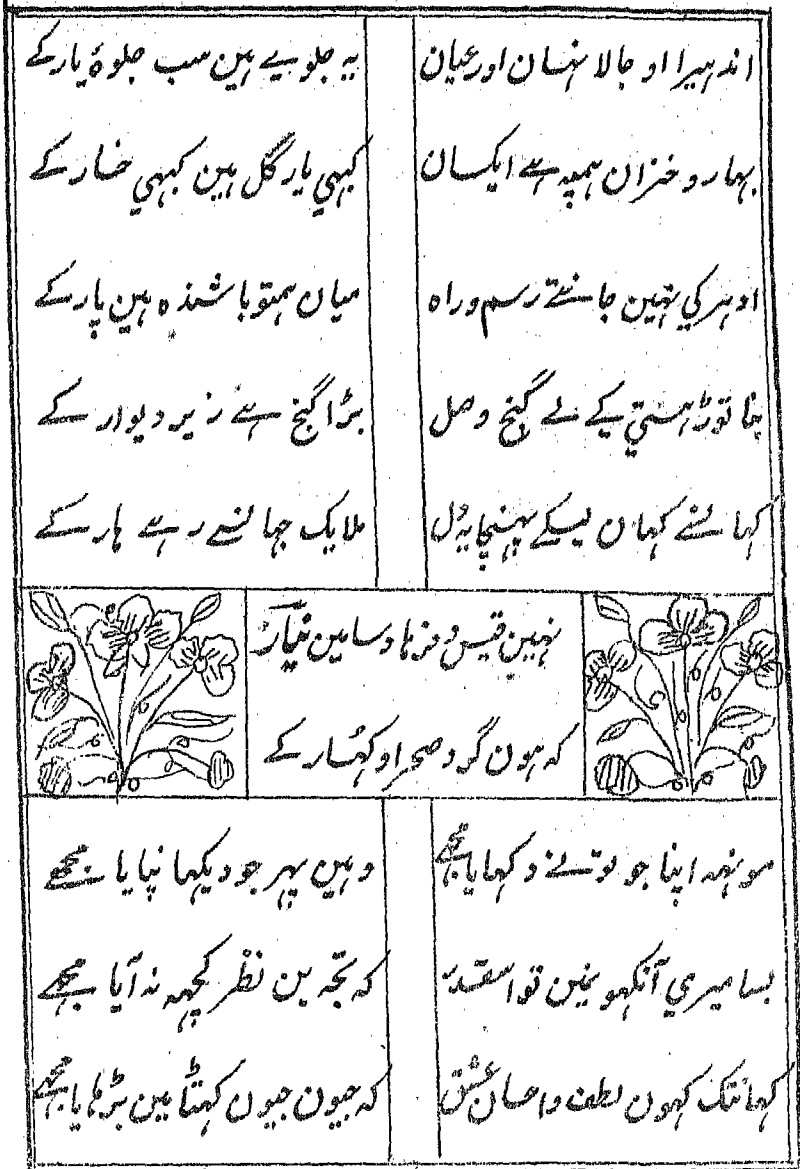 اندہیرا او جالا نہان اور عیان یہ جلویے ہین سب جلوۂ یار کے
بہار و خزان ہمپہ ہے ایکسان کبہی یار گل ہین کبہی خار کے
اودہر کی نہین جانتے رسم و راہ میان ہمتو باشندہ ہین پار کے
بنا توڑ ہستی کے لے گنج وصل بڑا گنج ہے زیر دیوار کے
کہانسے کہان لیکے پہنچا یہ دل ملایک جہانسے رہے ہار کے
نہین قیس و فرہاد سا مین نیاز
کہ ہون گرد صحرا و کہسار کے
مونہہ اپنا جو تونے دکہایا مجھے وہین پہر جو دیکہا نپایا مجھے
بسا میری آنکہو نمین تو اسقدر کہ تجہ بن نظر کچہہ نہ آیا مجھے
کہانتک کہون لطف و احسان عشق کہ جیون جیون گہٹا مین بڑہایا مجھے